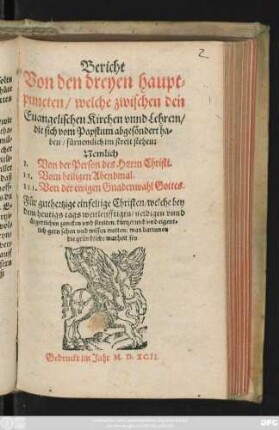 2
Bericht
Von den dreyen haupt-
puncten/ welche zwischen den
Euangelischen Kirchen vnnd Lehrern/
die sich vom Papstum abgesöndert ha-
ben/ fürnemlich im streit stehen:
Nemlich
I. Von der Person des Herrn Christi.
II. Vom heiligen Abendmal.
III. Von der ewigen Gnadenwahl Gottes.
Für guthertzige einfeltige Christen/ welche bey
dem heutigs tags weitleufftigen/ neidigen vnnd
ärgerlichen zancken vnd streiten/ kurtz vnd eigent-
lich gern sehen vnd wissen wolten/ was hierinnen
die gründliche warheit sey.
Gedruckt im Jahr M. D. XCII.